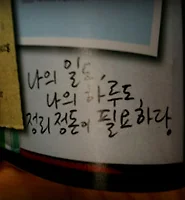 나의 일도,
나의 하루도,
정리정돈이 필요하다